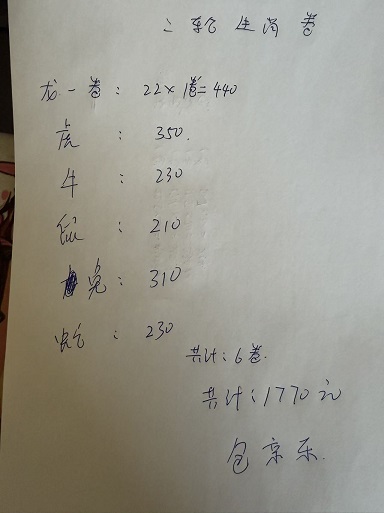 二轮生肖卷
龙一卷：22×1卷=440
虎：350.
牛：230
鼠：210
兔：310
蛇：230
共计：6卷.
共计：1770元
包京东.